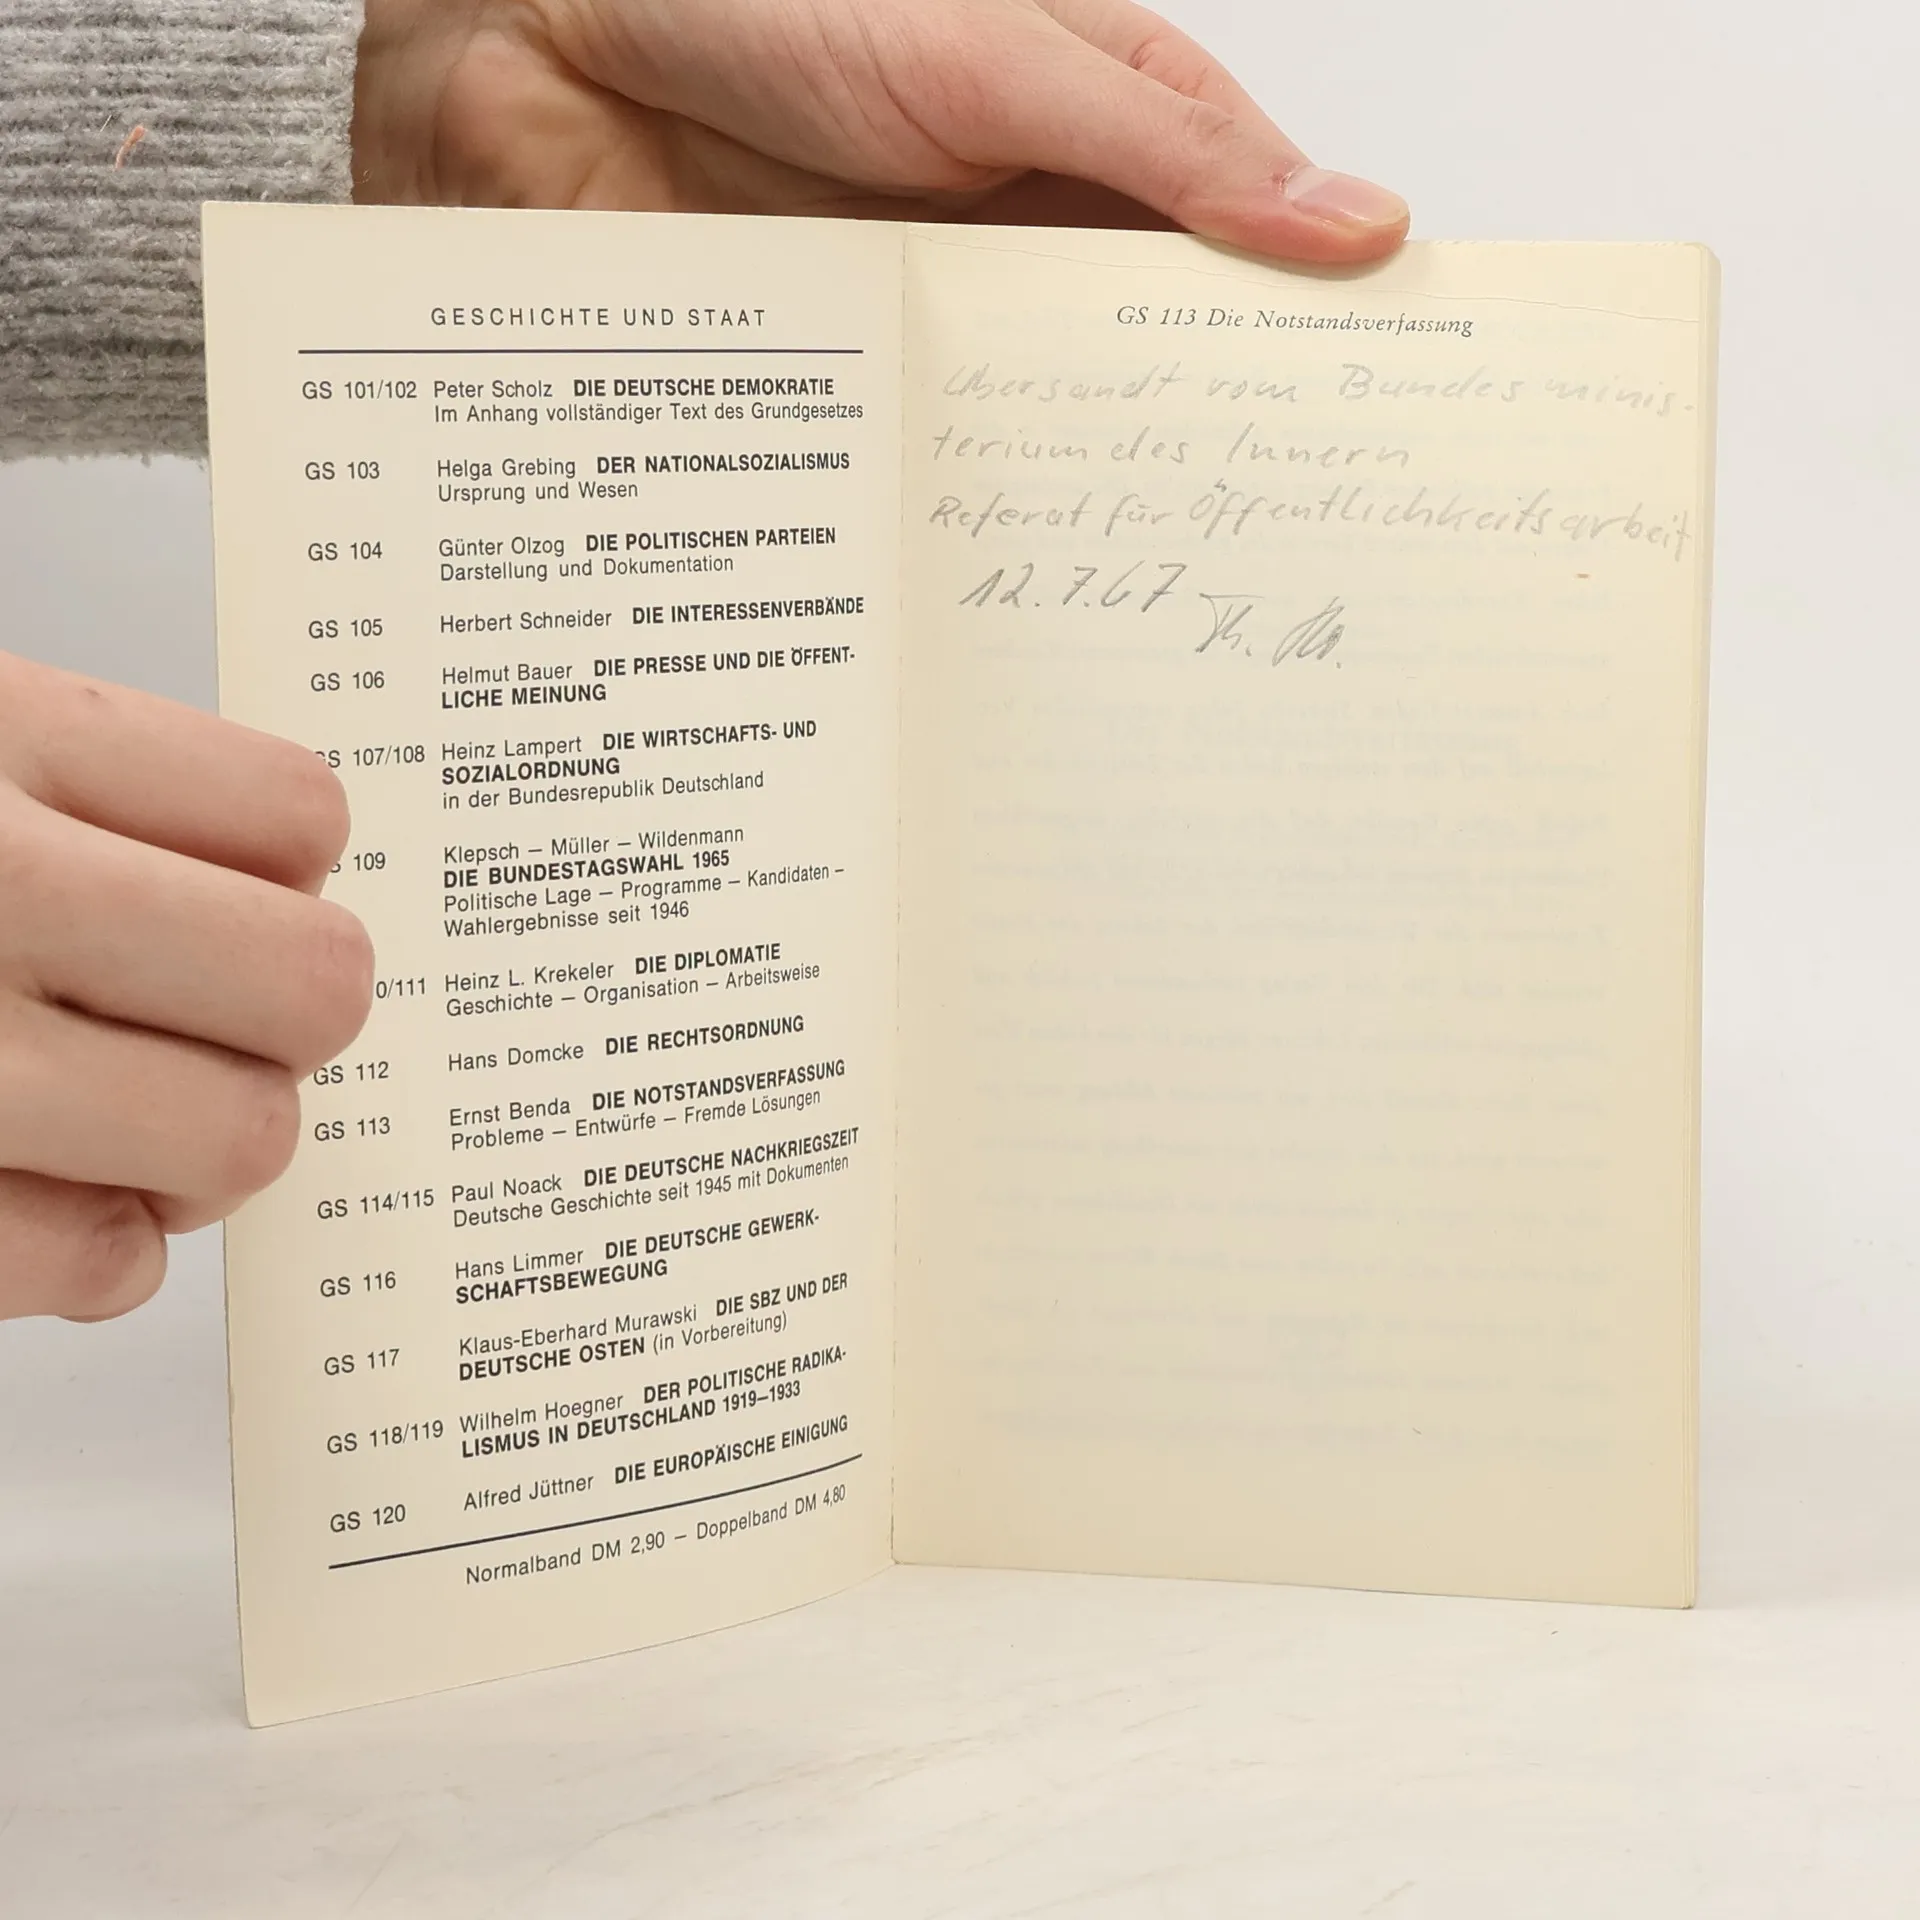 GESCHICHTE UND STAAT
GS 101/102 Peter Scholz DIE DEUTSCHE DEMOKRATIE
Im Anhang vollständiger Text des Grundgesetzes
GS 103 Helga Grebing DER NATIONALSOZIALISMUS
Ursprung und Wesen
GS 104 Günter Olzog DIE POLITISCHEN PARTEIEN
Darstellung und Dokumentation
GS 105 Herbert Schneider DIE INTERESSENVERBÄNDE
GS 106 Helmut Bauer DIE PRESSE UND DIE ÖFFENT-
LICHE MEINUNG
GS 107/108 Heinz Lampert DIE WIRTSCHAFTS- UND
SOZIALORDNUNG
in der Bundesrepublik Deutschland
S 109 Klepsch – Müller – Wildenmann
DIE BUNDESTAGSWAHL 1965
Politische Lage – Programme – Kandidaten –
Wahlergebnisse seit 1946
0/111 Heinz L. Krekeler DIE DIPLOMATIE
Geschichte – Organisation – Arbeitsweise
GS 112 Hans Domcke DIE RECHTSORDNUNG
GS 113 Ernst Benda DIE NOTSTANDSVERFASSUNG
Probleme – Entwürfe – Fremde Lösungen
GS 114/115 Paul Noack DIE DEUTSCHE NACHKRIEGSZEIT
Deutsche Geschichte seit 1945 mit Dokumenten
GS 116 Hans Limmer DIE DEUTSCHE GEWERK-
SCHAFTSBEWEGUNG
GS 117 Klaus-Eberhard Murawski DIE SBZ UND DER
DEUTSCHE OSTEN (in Vorbereitung)
GS 118/119 Wilhelm Hoegner DER POLITISCHE RADIKA-
LISMUS IN DEUTSCHLAND 1919–1933
GS 120 Alfred Jüttner DIE EUROPÄISCHE EINIGUNG
Normalband DM 2,90 – Doppelband DM 4,80
GS 113 Die Notstandsverfassung
Übersandt vom Bundesminis-
terium des Innern
Referat für Öffentlichkeitsarbeit
12.7.67 Th.